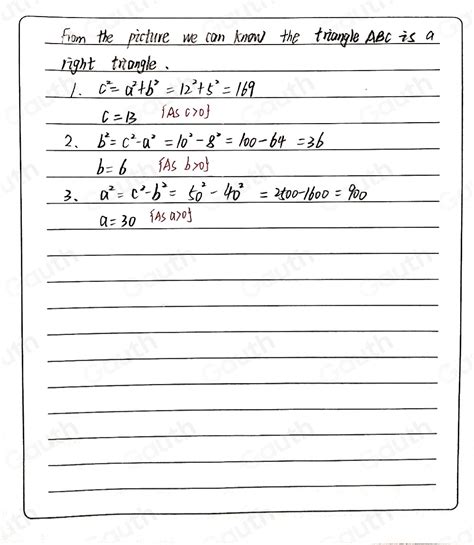 From the picture we can know the triangle ABC is a
right triangle.
1. c²=a²+b²=12²+5²=169
c=13 {As c>0}
2. b²=c²-a²=10²-8²=100-64=36
b=6 {As b>0}
3. a²=c²-b²=50²-40²=2500-1600=900
a=30 {As a>0}
Gauth